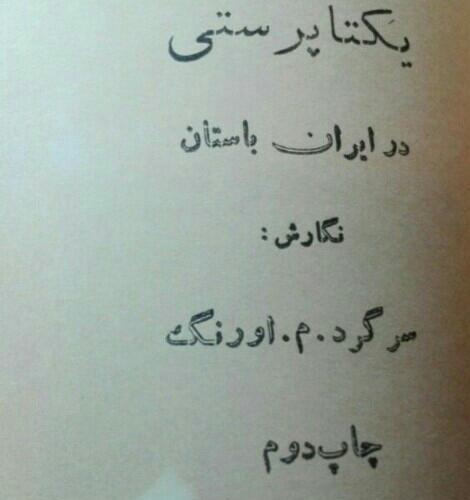 یکتاپرستی
در ایران باستان
نگارش:
سرگرد.م.اورنگ
چاپ دوم